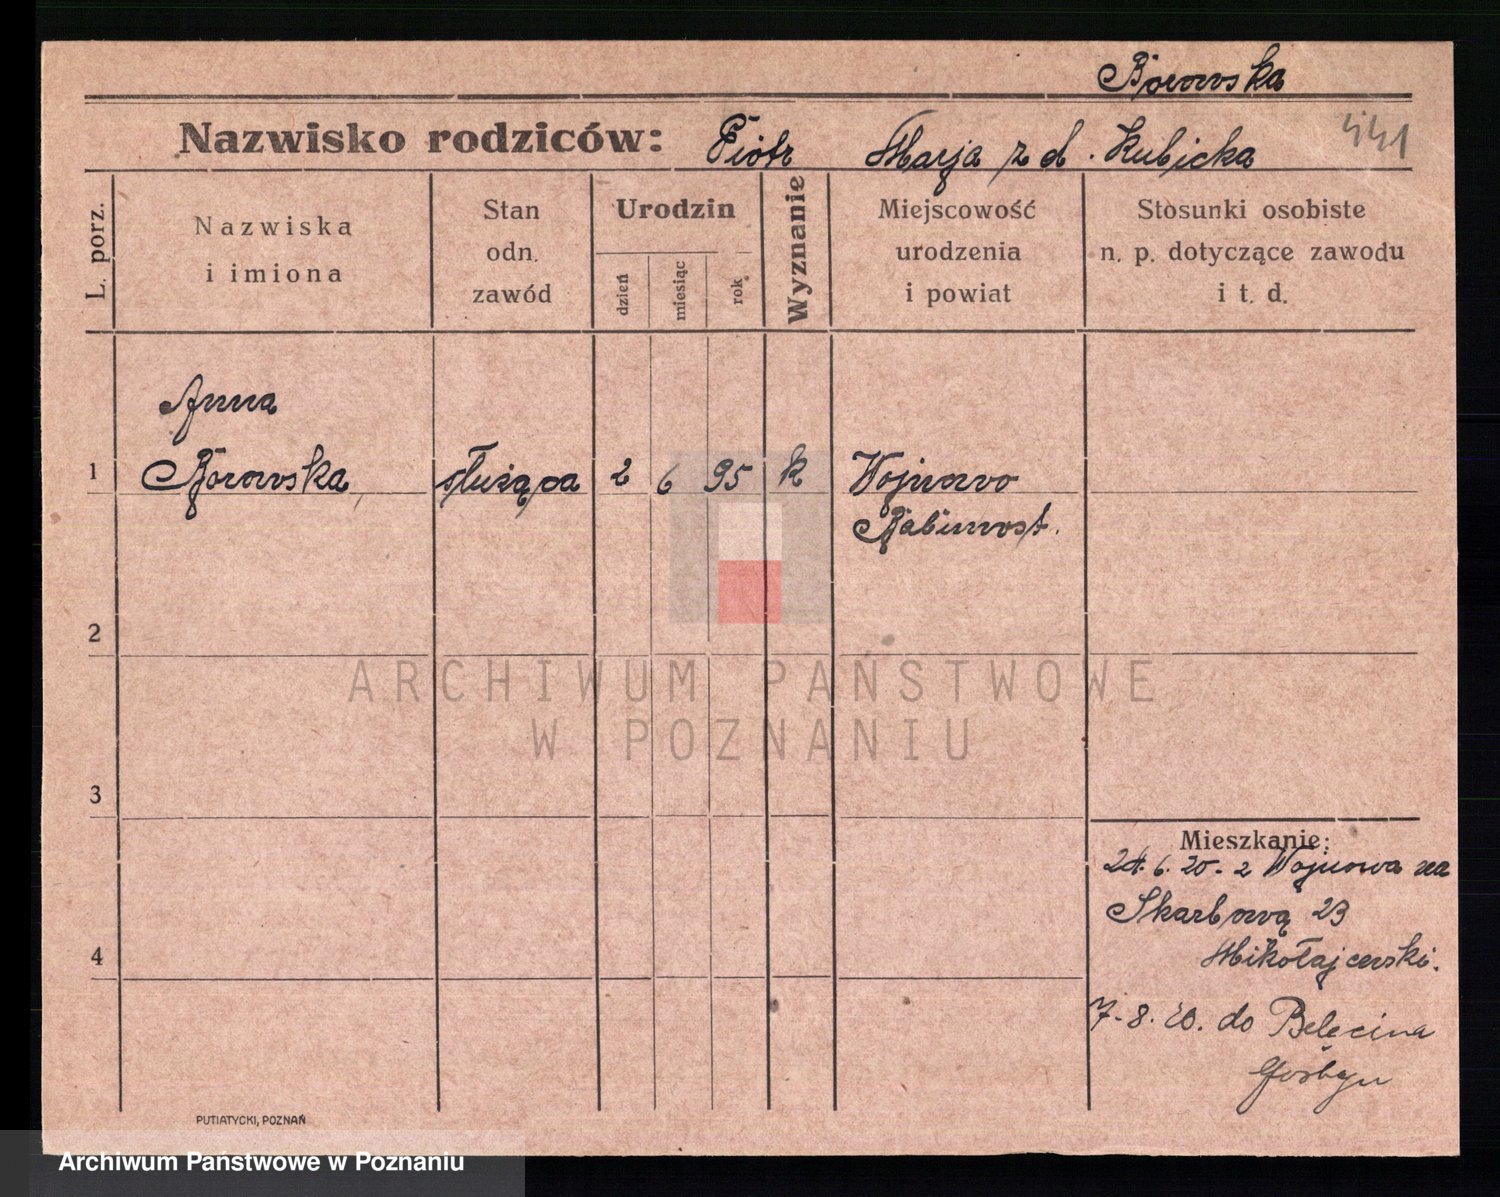 Borowska
Nazwisko rodziców: Piotr Marja z d. Kubicka 441
L. porz.
Nazwiska
i imiona
Stan
odn.
zawód
Urodzin
dzień
miesiąc
rok
Wyznanie
Miejscowość
urodzenia
i powiat
Stosunki osobiste
n. p. dotyczące zawodu
i t. d.
Anna
1 Borowska, służąca 2 6 95 k Wojnowo
Babimost.
2
ARCHIWUM PAŃSTWOWE
W POZNANIU
3
Mieszkanie:
24.6.20. z Wojnowa na
Skarbową 23
4
Mikołajcerski.
7.8.20. do Belęcina
PUTIATYCKI, POZNAŃ
Archiwum Państwowe w Poznaniu